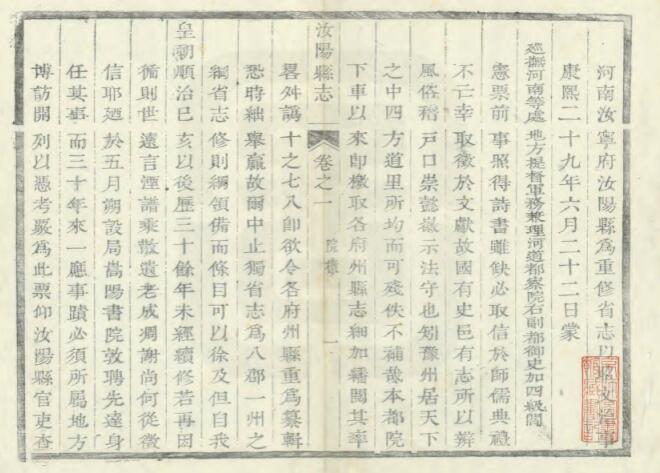 河南汝寧府汝陽縣爲重修省志以
康熙二十九年六月二十二日蒙
巡撫河南等處地方提督軍務兼理河道都察院右副都御史加四級閻
憲票前事照得詩書雖缺必取信於師儒典禮
不亡幸取徵於文獻故國有史邑有志所以辨
風俗稽戶口崇懿徽示法守也矧豫州居天下
之中四方道里所均而可殘佚不補哉本都院
下車以來卽檄取各府州縣志細加繙閱其率
汝陽縣志
卷之一
院檄
一
畧舛譌十之七八卽欲令各府州縣重爲纂輯
恐時絀舉贏故爾中止獨省志爲八郡一州之
綱省志修則綱領備而條目可以徐及但自我
皇朝順治己亥以後歷三十餘年未經續修若再因
循則世遠言湮譜乘散遺老成凋謝尚何從徵
信耶廼於五月朔設局嵩陽書院敦聘先達身
任其事而三十年來一應事蹟必須所屬地方
博訪開列以憑考覈爲此票仰汝陽縣官吏查